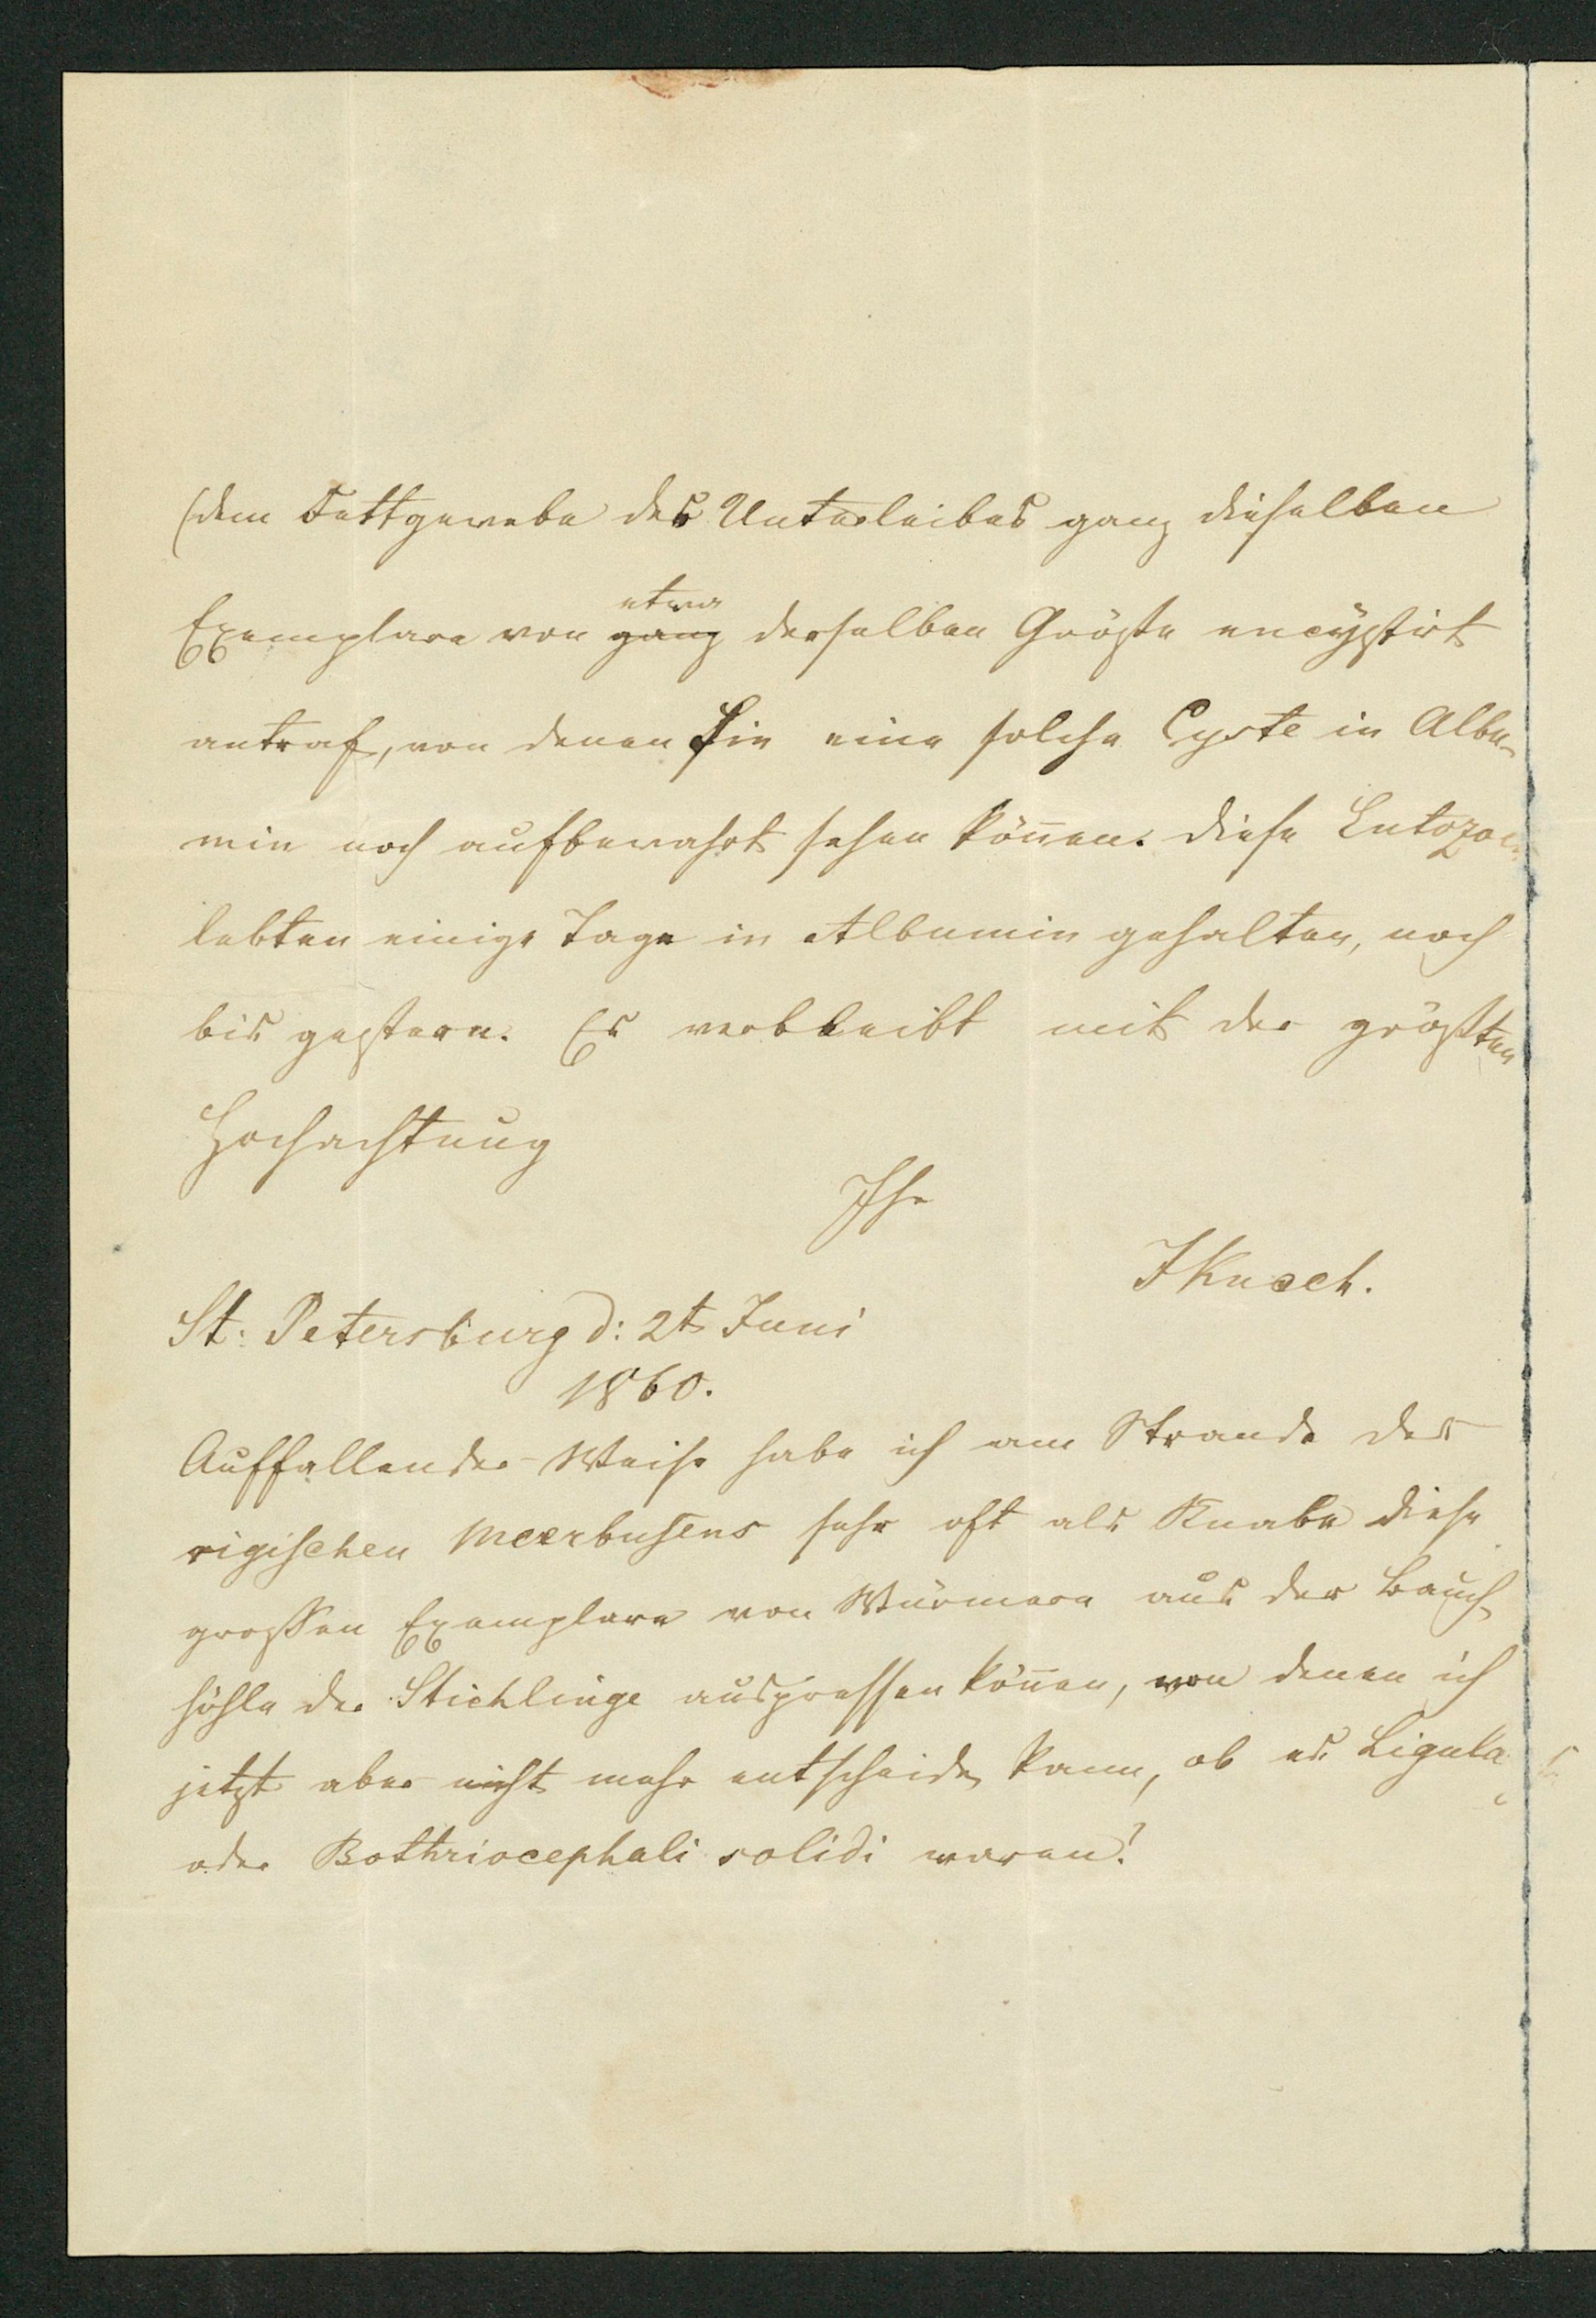 (dem Fettgewebe des Unterleibes ganz dieselben
etwa
Exemplare von ganz derselben Größe encÿstirt
antraf, von denen Sie eine solche Cyste in Albu-
min noch aufbewahrt sehen können. Diese Entozoen
lebten einige Tage in Albumin gehalten, noch
bis gestern. Es verbleibt mit der größten
Hochachtung
Ihr
JKnoch.
St: Petersburg d: 2t Juni
1860.
Auffallender Weise habe ich am Strande des
rigischen Meerbusens sehr oft als Knabe diese
grossen Exemplare von Würmern aus der Bauch
höhle der Stichlinge auspressen können, von denen ich
jetzt aber nicht mehr entscheiden kann, ob es Ligula
oder Bothriocephali solidi waren!